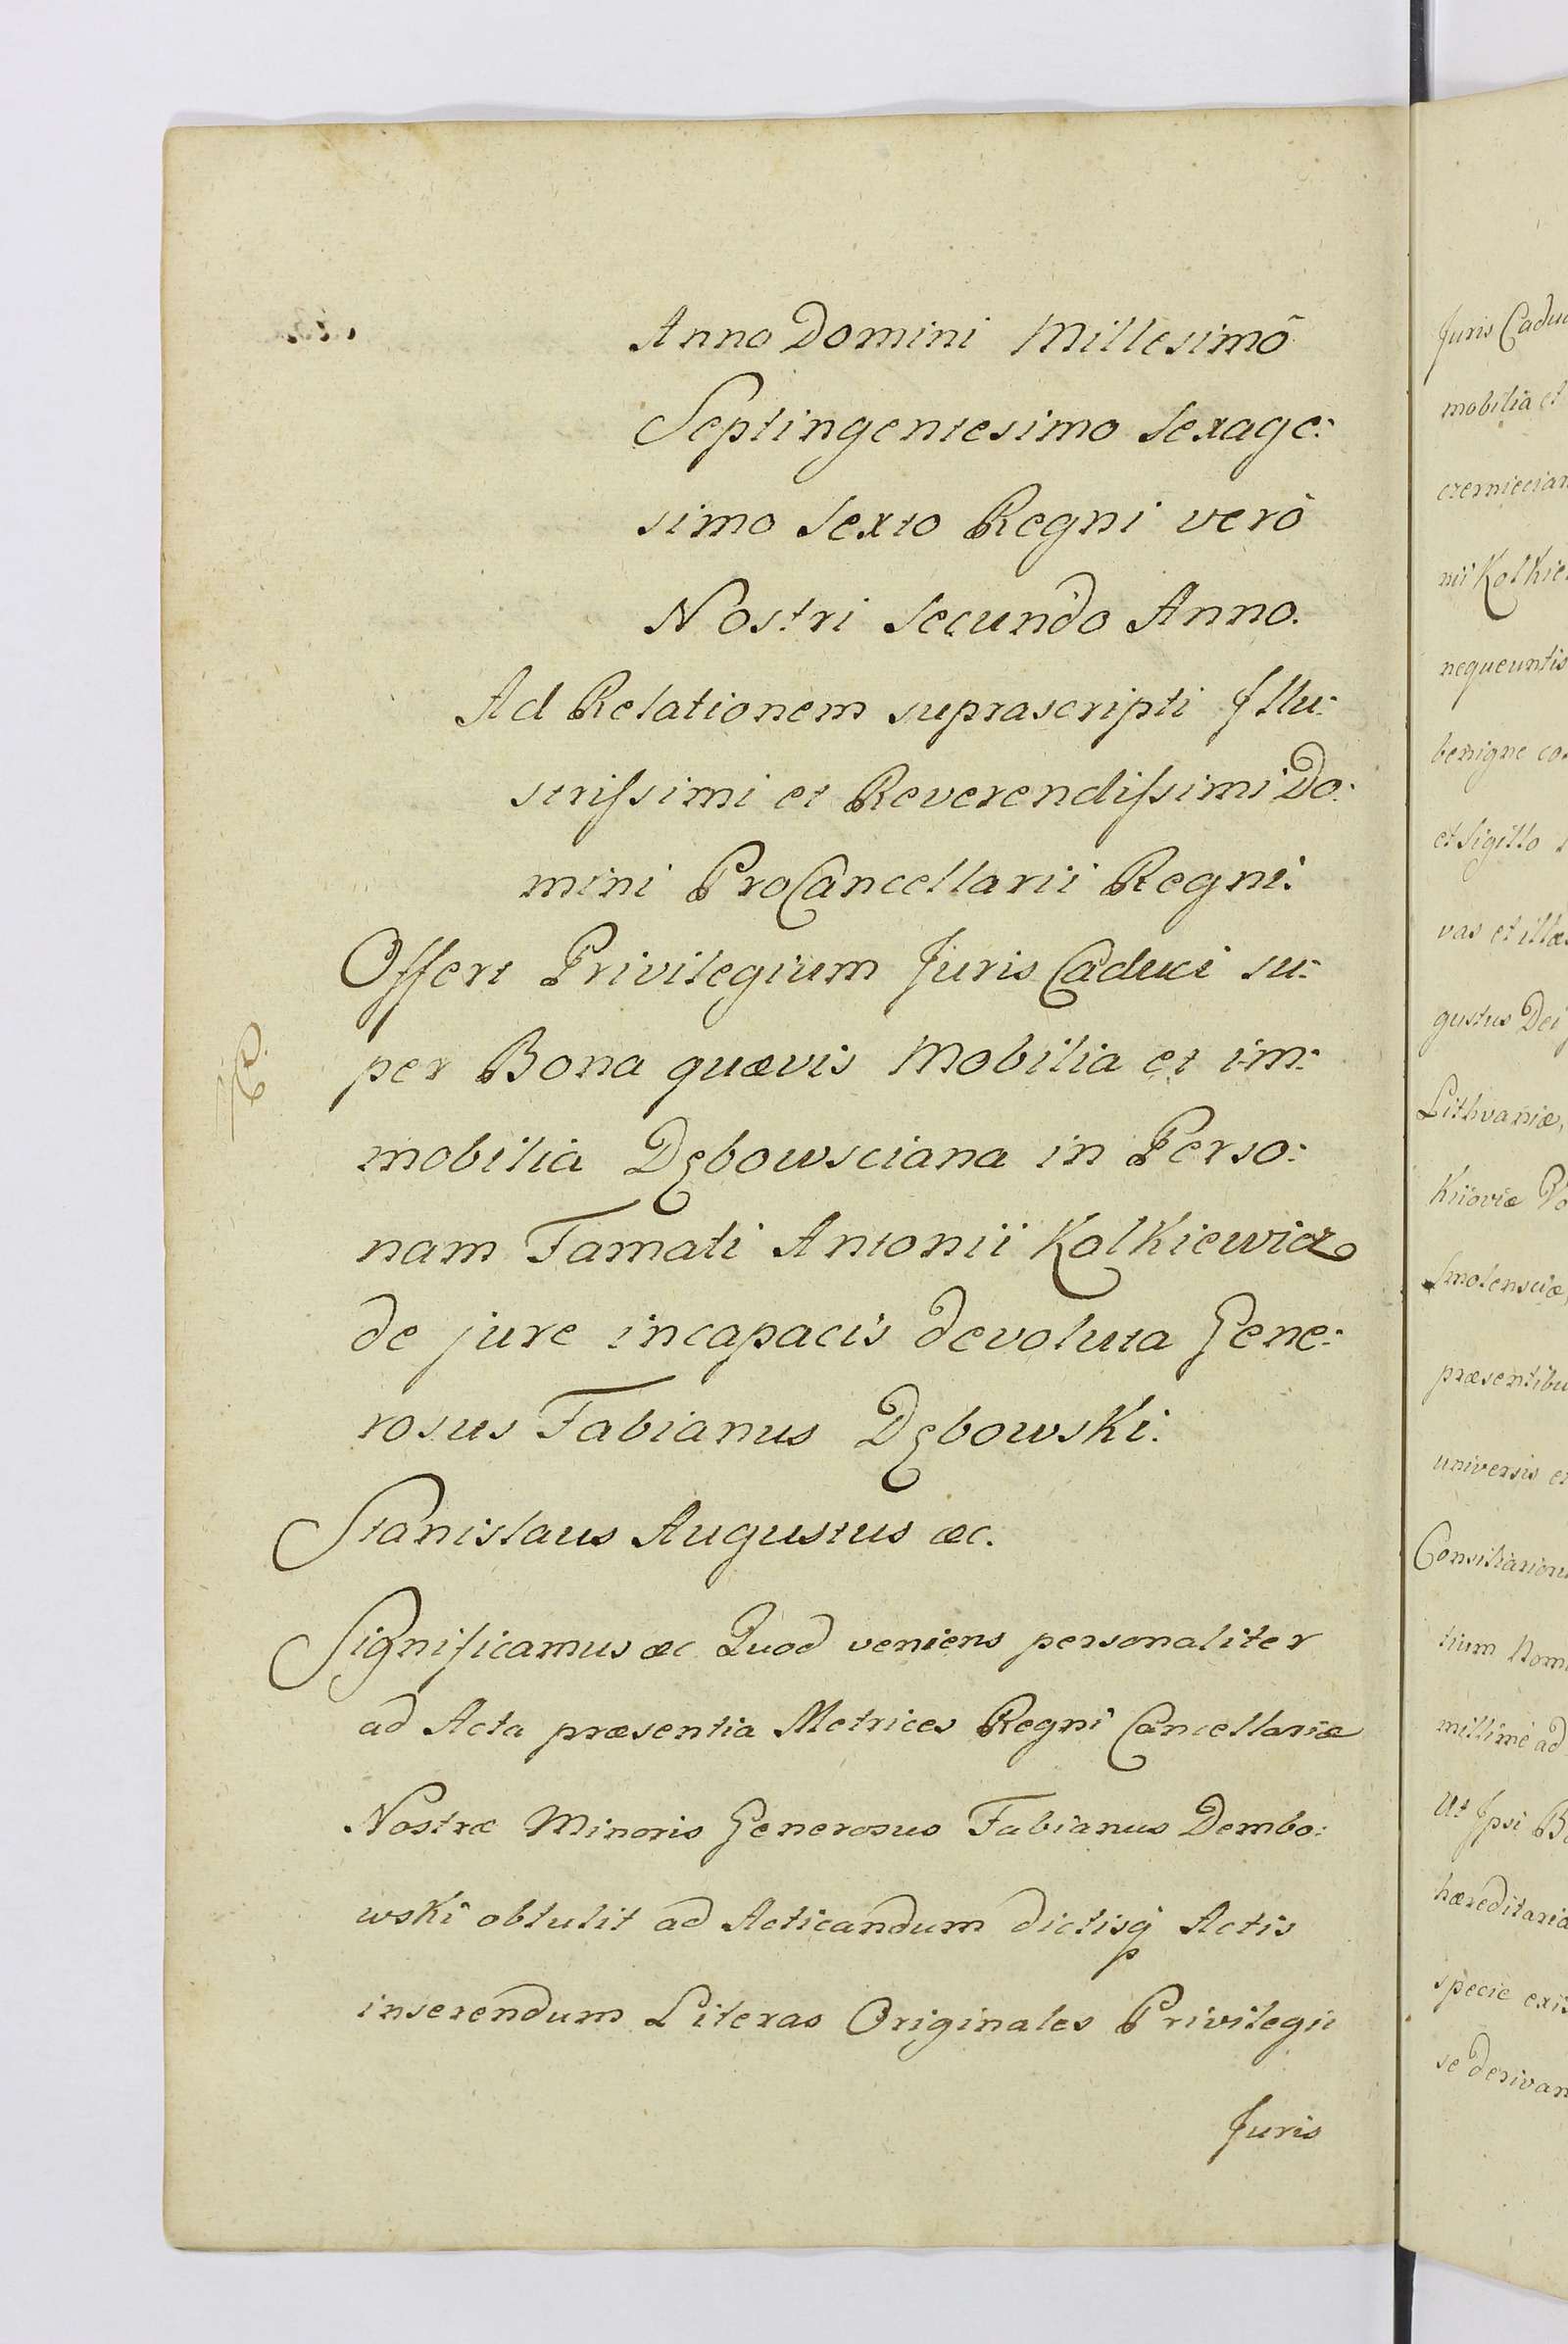 Anno Domini Millesimô
Septingentesimo Sexage:
simo Sexto Regni verô
Nostri Secundo Anno.
Ad Relationem suprascripti Illu:
strissimi et Reverendissimi Do:
mini ProCancellarii Regni.
Offert Privilegium Juris Caduci su:
per Bona quævis Mobilia et im:
mobilia Dębowsciana in Perso:
nam Famati Antonii Kolkiewicz
de jure incapacis devoluta Gene:
rosus Fabianus Dębowski.
Stanislaus Augustus æc.
Significamus æc Quod veniens personaliter
ad Acta præsentia Metrices Regni Cancellariæ
Nostræ Minoris Generosus Fabianus Dembo:
wski obtulit ad Acticandum dictisq Actis
inserendum Literas Originales Privilegii
Juris
Juris Cadu
mobilia et
czernieccian
nii Kolkie
nequeuntis
benigne co
et Sigillo
vas et illæ
gustus Dei
Lithvaniæ,
Kiioviæ Vo
Smolensciæ,
præsentibu
universis et
Consiliarioru
tium Nom
millimè ad
Ut Ipsi Bo
hæreditaria
specie exis
se derivan